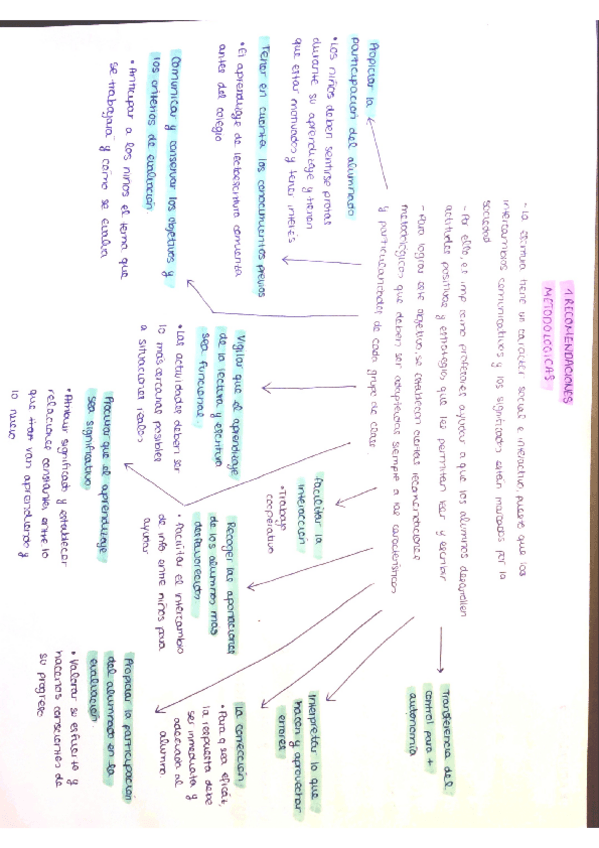 1. RECOMENDACIONES
METODOLÓGICAS
- La escritura tiene un carácter social e interactivo, puesto que los
intercambios comunicativos y los significados están marcados por la
sociedad
- Por ello, es imp como profesores ayudar a que los alumnos desarrollen
actitudes positivas y estrategias que les permitan leer y escribir
- Para lograr este objetivo se establecen ciertas recomendaciones
metodológicas que deben ser adaptadas siempre a las características
y particularidades de cada grupo de clase.
Propiciar la
participación del alumnado
• Los niños deben sentirse protas
durante su aprendizaje y tienen
que estar motivados y tener interés
Tener en cuenta los conocimientos previos
• El aprendizaje de lectoescritura comienza
antes del colegio
Comunicar y conservar los objetivos y
los criterios de evaluación
• Anticipar a los niños el tema que
se trabajará y cómo se evalúa
Vigilar que el aprendizaje
de la lectura y escritura
sea funcional.
• Las actividades deben ser
lo más cercanas posibles
a situaciones reales
Procurar que el aprendizaje
sea significativo
• Atribuir significado y establecer
relaciones constantes entre lo
que van aprendiendo y
lo nuevo
Facilitar la
interacción
• Trabajo
cooperativo
Recoger las aportaciones
de los alumnos más
desfavorecidos
• Facilitar el intercambio
de info entre niños para
ayudar
Propiciar la participación
del alumnado en la
evaluación.
• Valorar su esfuerzo y
hacerlos conscientes de
su progreso
La corrección
• Para q sea eficaz,
la respuesta debe
ser inmediata y
adecuada al
alumno.
Interpretar lo que
hacen y aprovechar
errores
Transferencia del
control para +
autonomía